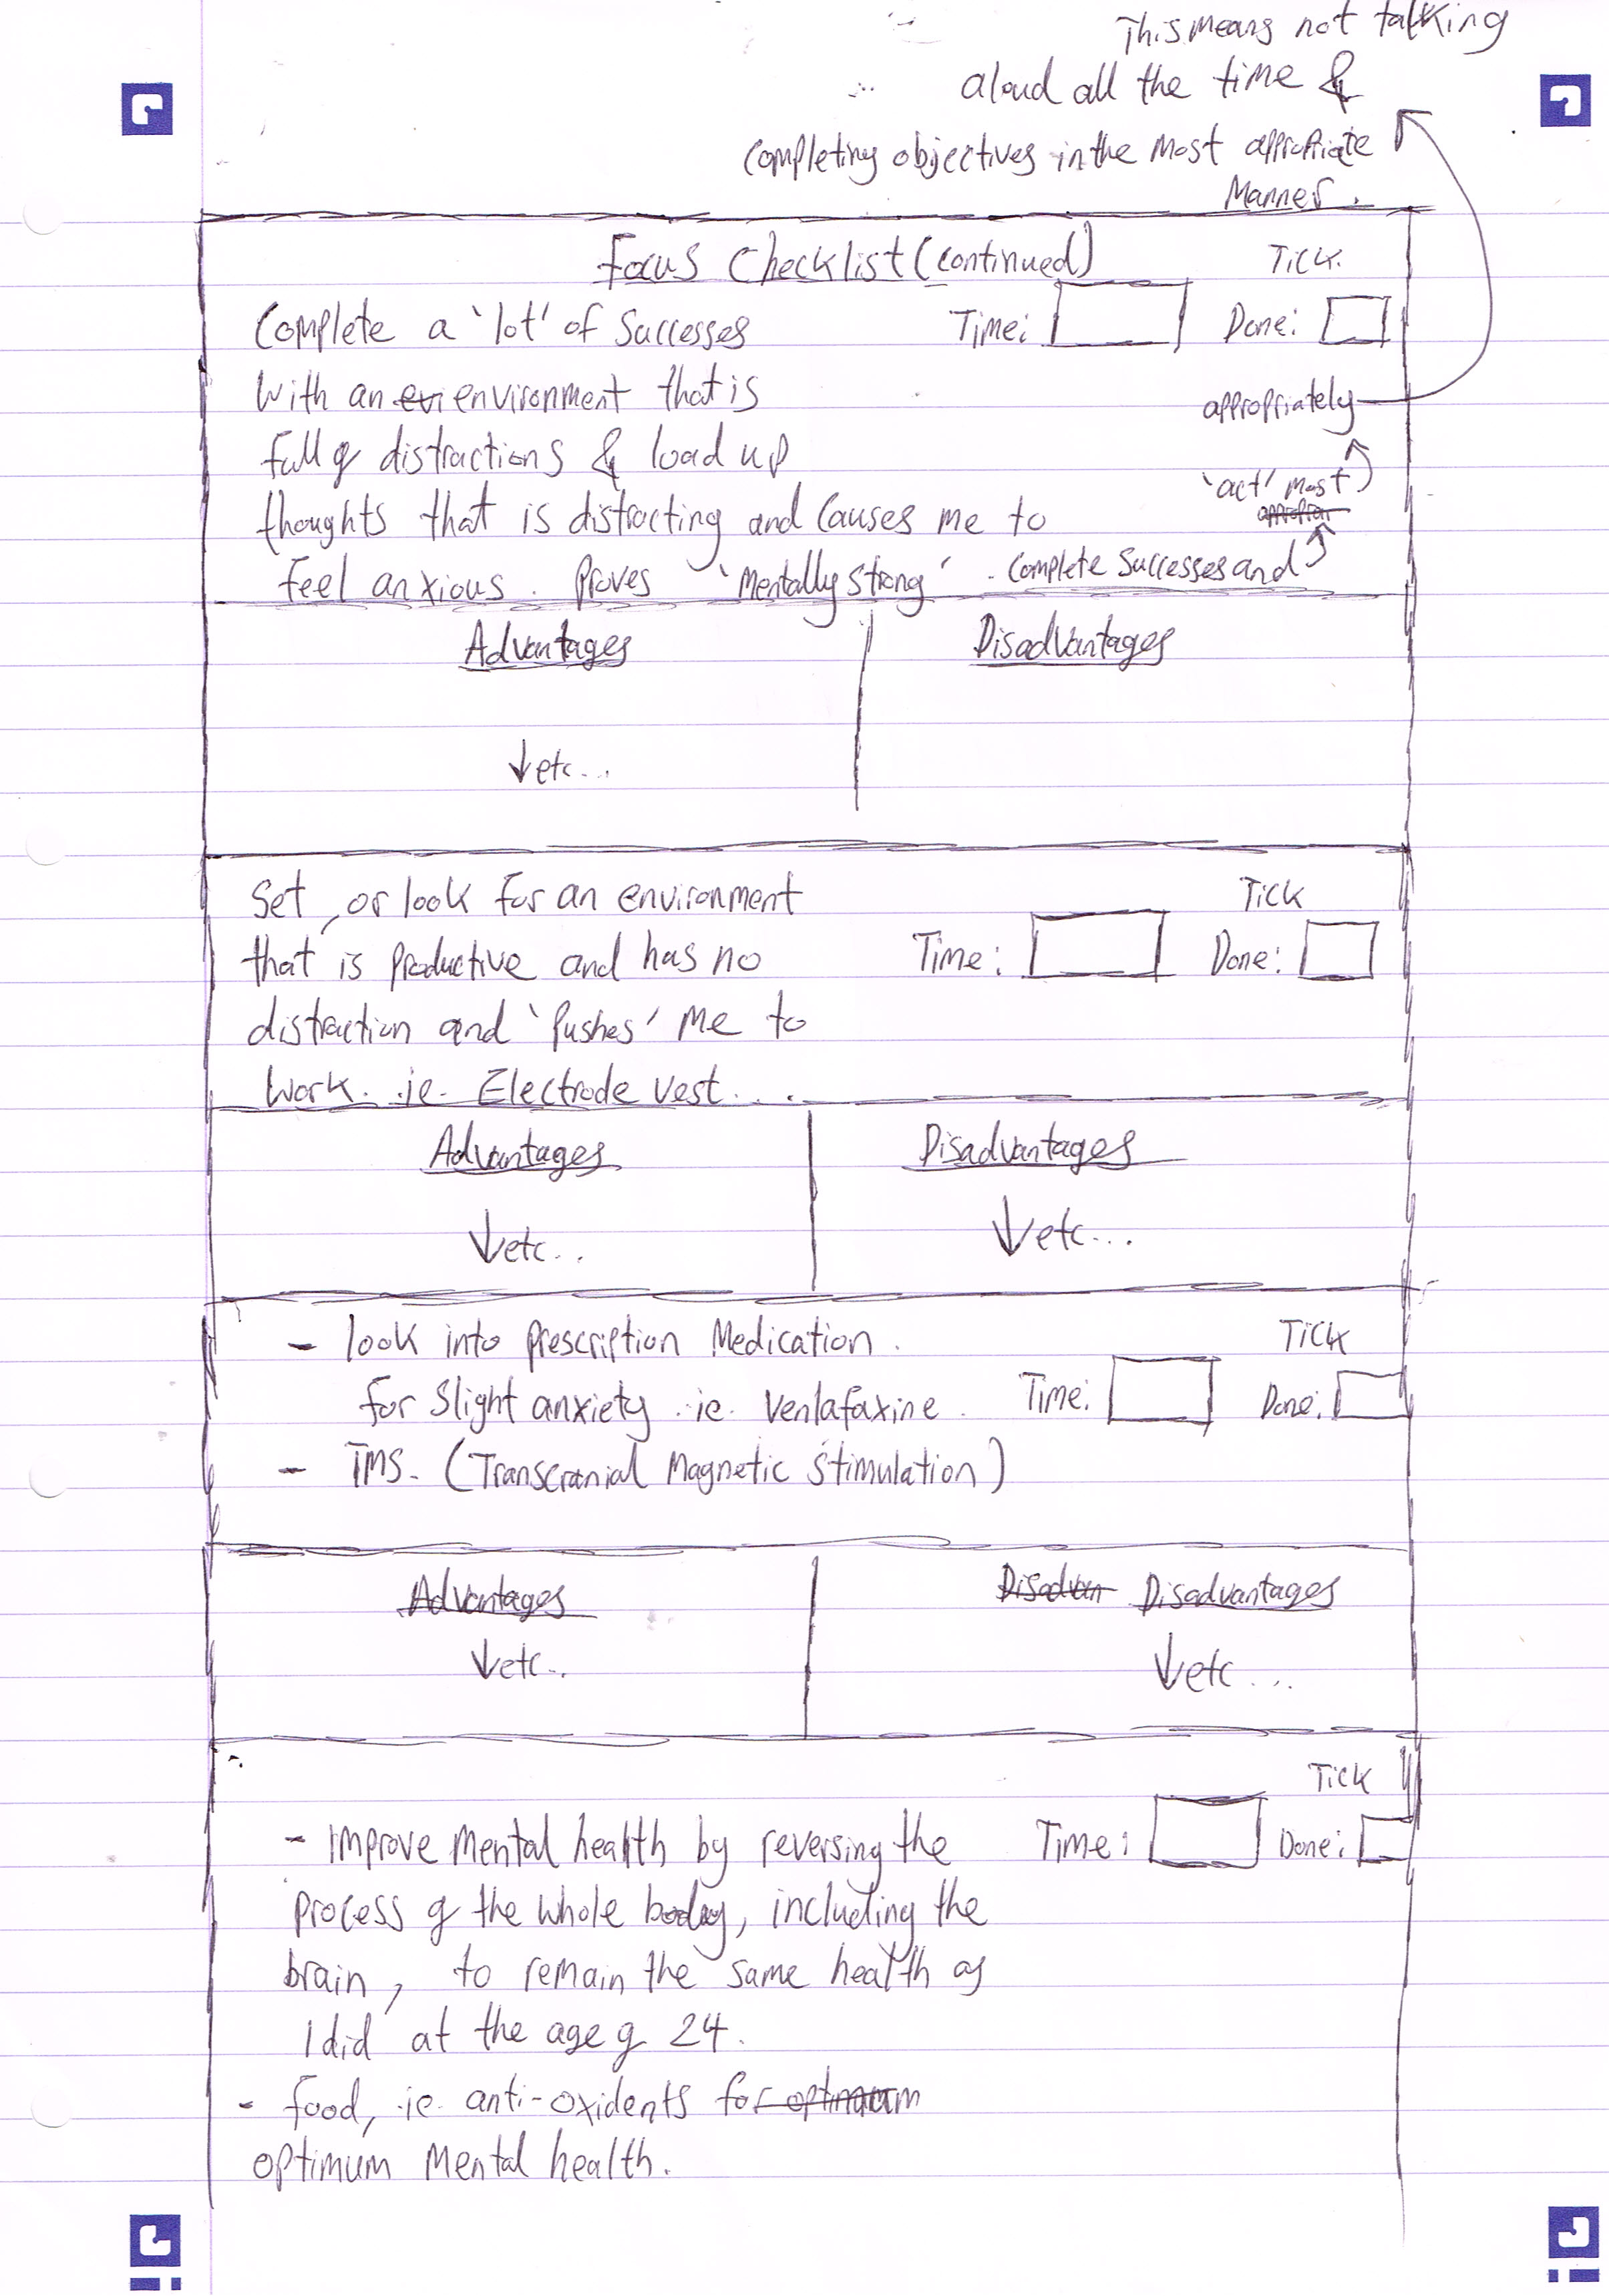 This means not talking
aloud all the time &
completing objectives in the most appropriate
manner.
Focus Checklist (continued)
TICK.
Complete a 'lot' of successes
Time:
Done:
with an evi environment that is
appropriately
full of distractions & load up
'act' most
thoughts that is distracting and causes me to
appropriat
feel anxious. Proves 'mentally strong'. Complete successes and
Advantages
Disadvantages
↓etc...
Set, or look for an environment
TICK
that is productive and has no
Time:
Done:
distraction and 'pushes' me to
work. ie. Electrode vest...
Advantages
Disadvantages
↓etc...
↓etc...
- look into prescription medication.
TICK
for slight anxiety .ie. Venlafaxine.
Time:
Done:
- TMS. (Transcranial Magnetic Stimulation)
Advantages
Disadvan Disadvantages
↓etc...
↓etc...
TICK
- Improve mental health by reversing the
Time:
Done:
process of the whole body, including the
brain, to remain the same health as
I did at the age of 24.
- Food, .ie. anti-oxidents for optimum
optimum mental health.